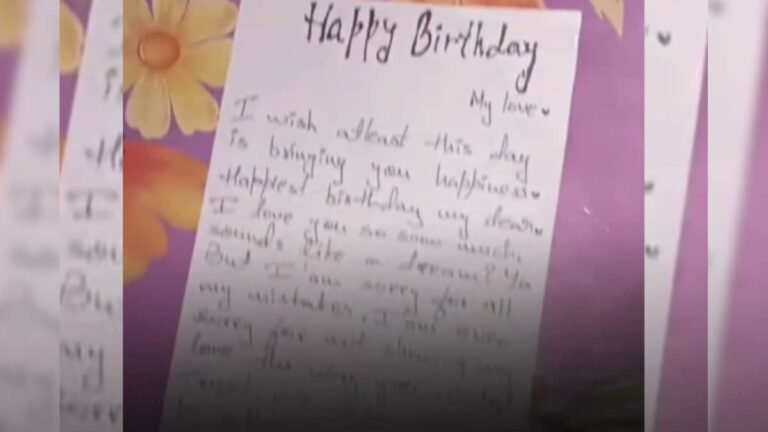 Happy Birthday
My love
I wish atleast this day
is bringing you happiness
Happiest birthday my dear
I love you so sooo much,
sounds like a dream? Ya
But I am sorry for all
my mistakes, I am even
sorry for not showing my
love the way you